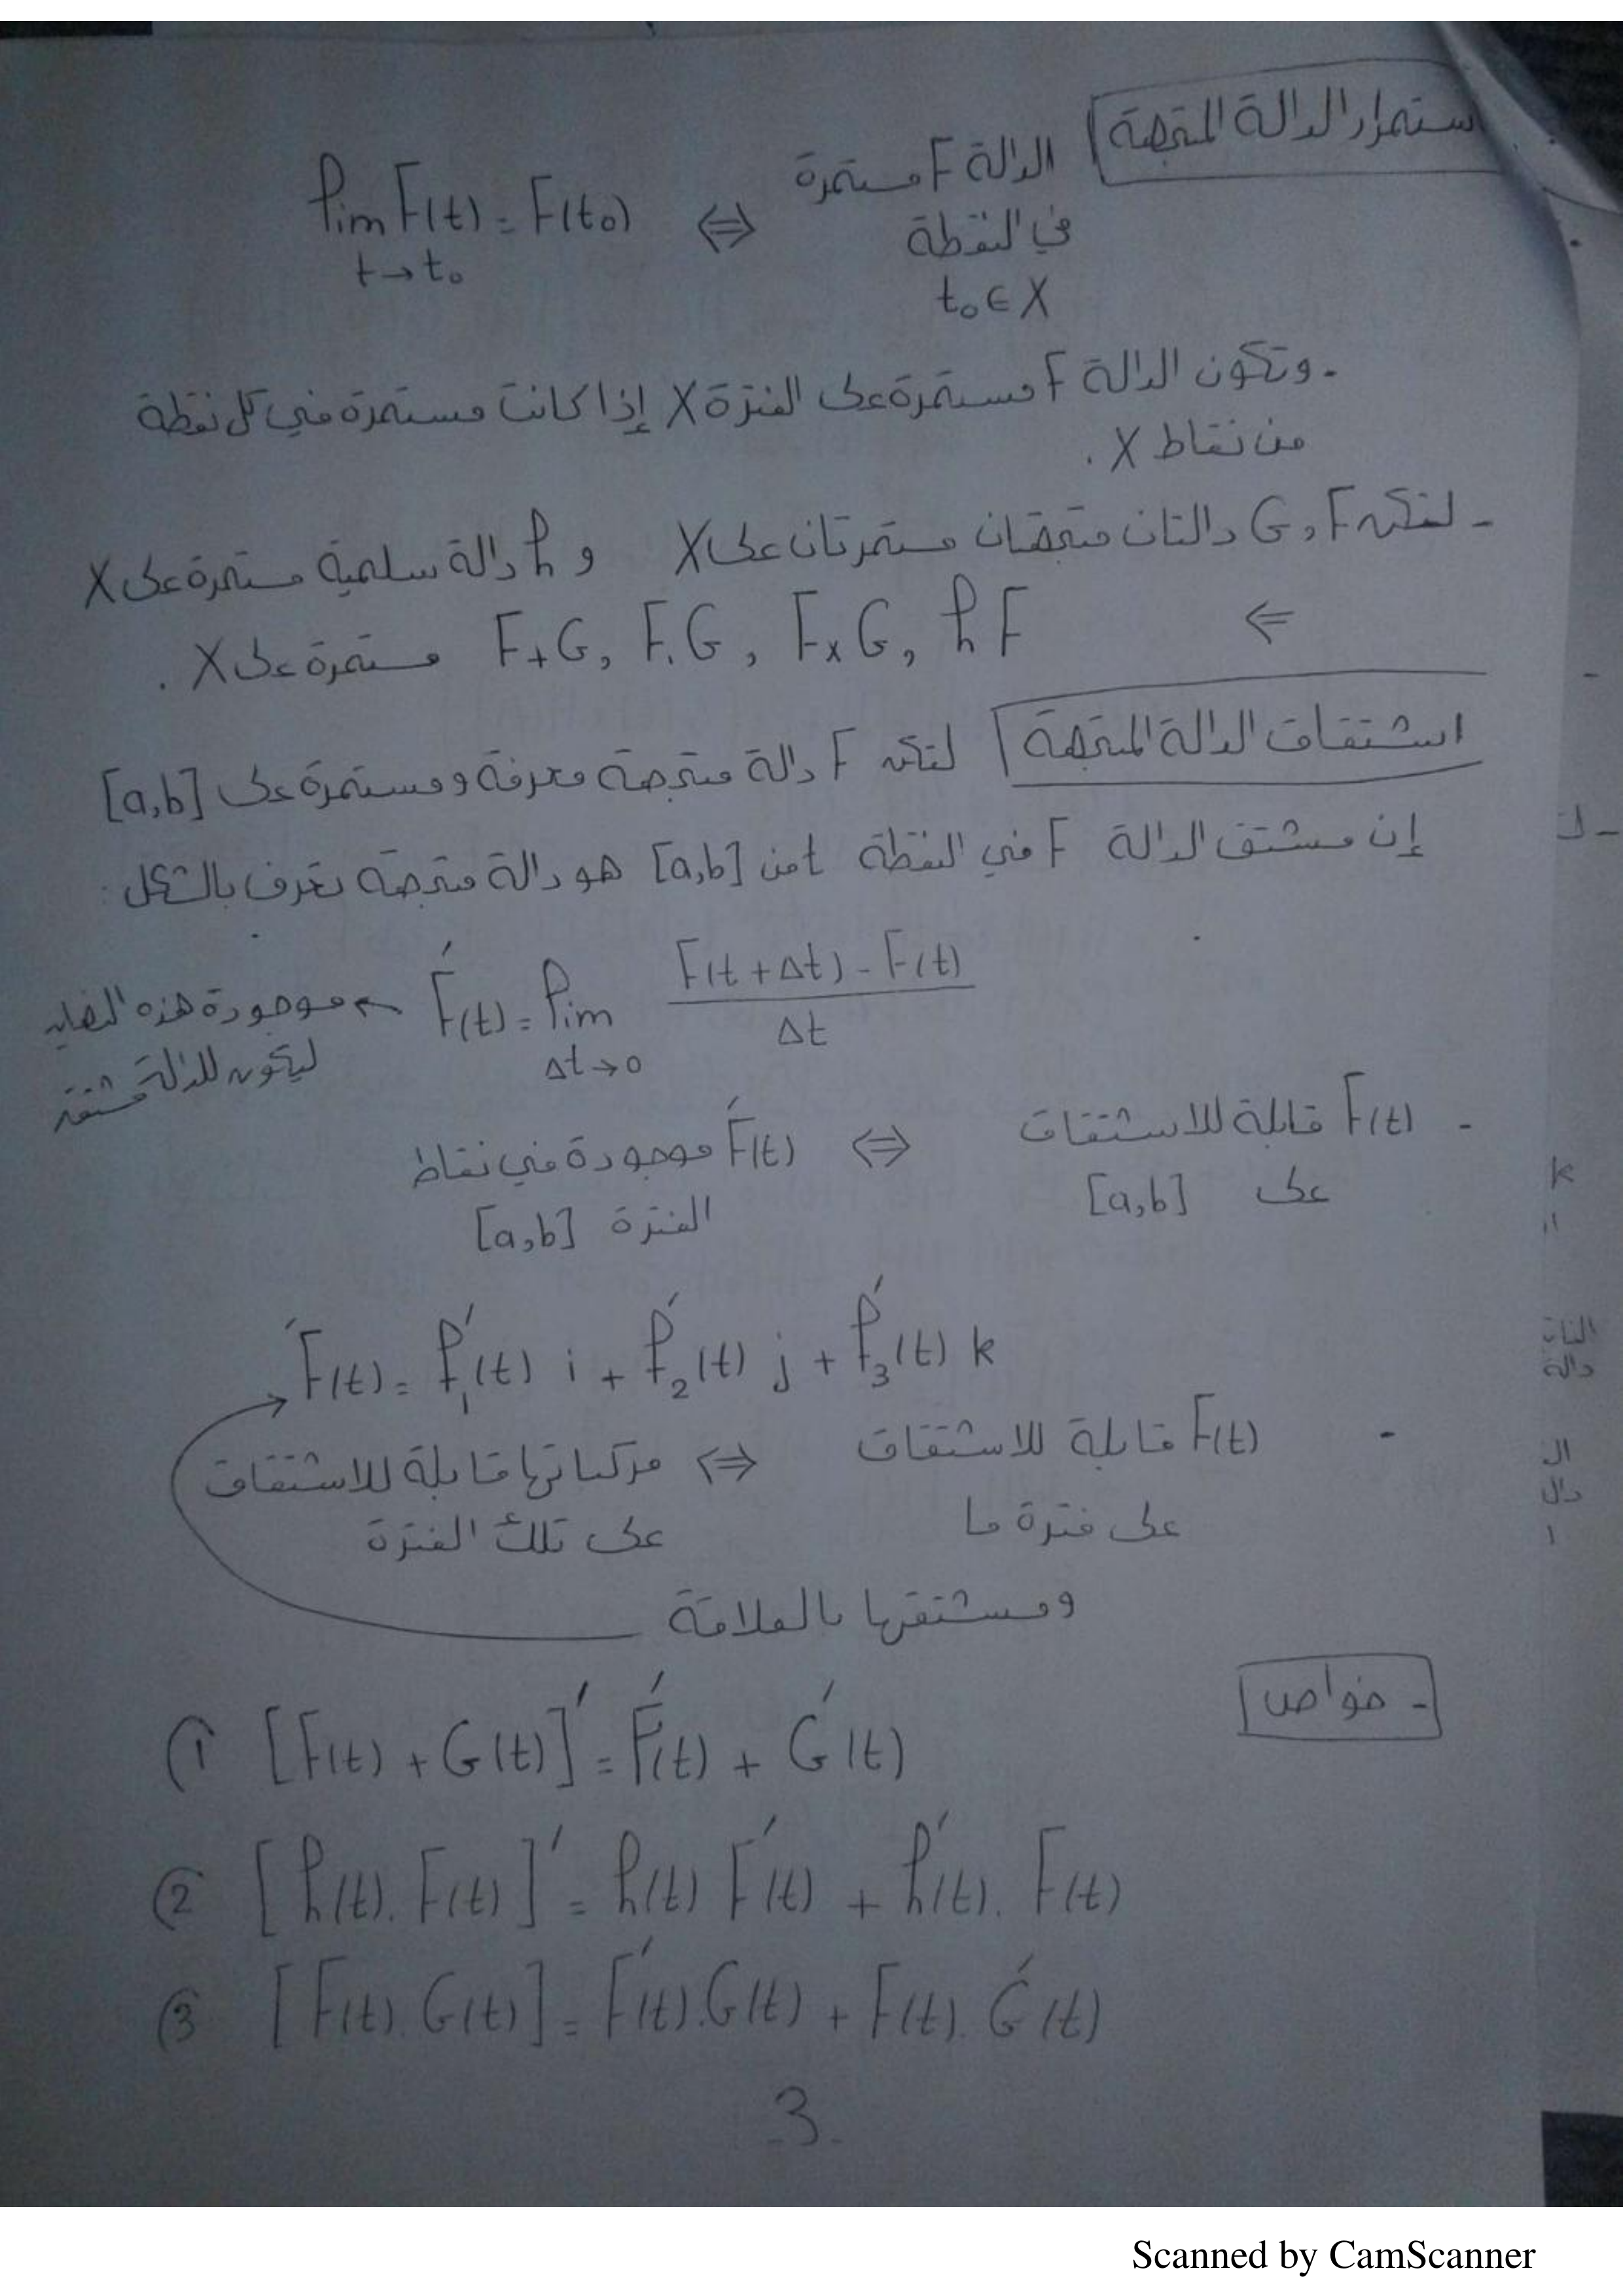 استمرار الدالة المتجهة
الدالة F مستمرة في النقطة t₀ ∈ X ⇔ lim F(t) = F(t₀)
t → t₀
- وتكون الدالة F مستمرة على الفترة X إذا كانت مستمرة في كل نقطة
من نقاط X .
- لتكن F و G دالتان متجهتان مستمرتان على X و h دالة سلمية مستمرة على X
⇐ F+G, F.G, F×G, hF مستمرة على X .
اشتقاق الدالة المتجهة لتكن F دالة متجهة معرفة ومستمرة على [a,b]
إن مشتق الدالة F في النقطة t من [a,b] هو دالة متجهة تعرف بالشكل :
F'(t) = lim (F(t+Δt) - F(t)) / Δt
Δt → 0
← موجودة هذه النهاية
ليكون للدالة مشتقة
- F(t) قابلة للاشتقاق ⇔ F'(t) موجودة في نقاط
على [a,b] الفترة [a,b]
F'(t) = f'₁(t) i + f'₂(t) j + f'₃(t) k
- F(t) قابلة للاشتقاق ⇔ مركباتها قابلة للاشتقاق
على فترة ما على تلك الفترة
ومشتقها بالعلاقة
- خواص
① [F(t) + G(t)]' = F'(t) + G'(t)
② [h(t). F(t)]' = h(t) F'(t) + h'(t). F(t)
③ [F(t). G(t)] = F'(t). G(t) + F(t). G'(t)
3
k
دالة
ال
Scanned by CamScanner